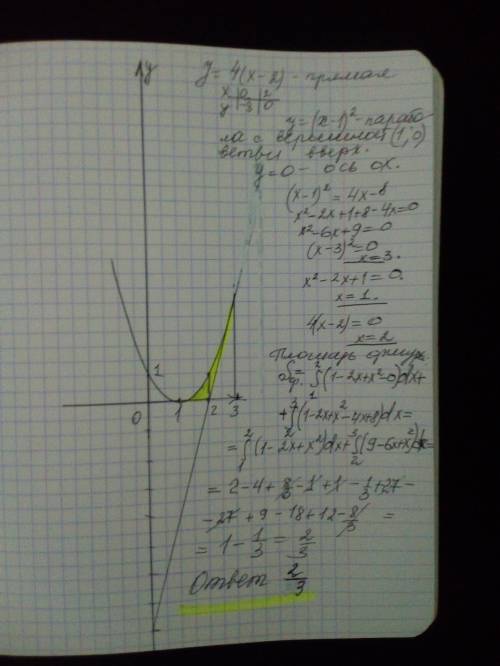 y
y = 4(x-2) - прямая
x | 0 | 2
y | -8 | 0
y = (x-1)² - парабо
ла с вершиной (1,0)
ветви вверх.
y=0 - ось ox.
(x-1)² = 4x-8
x²-2x+1+8-4x=0
x²-6x+9=0
(x-3)²=0
x=3.
x²-2x+1=0.
x=1.
4(x-2)=0
x=2
Площадь
∫₁²(1-2x+x²-0)dx+
+∫₂³(1-2x+x²-4x+8)dx=
=∫₁²(1-2x+x²)dx+∫₂³(9-6x+x²)dx=
= 2-4+8/3-1+1-1/3+27-
-27+9-18+12-8/3 =
= 1-1/3 = 2/3
Ответ 2/3
1
0 1 2 3